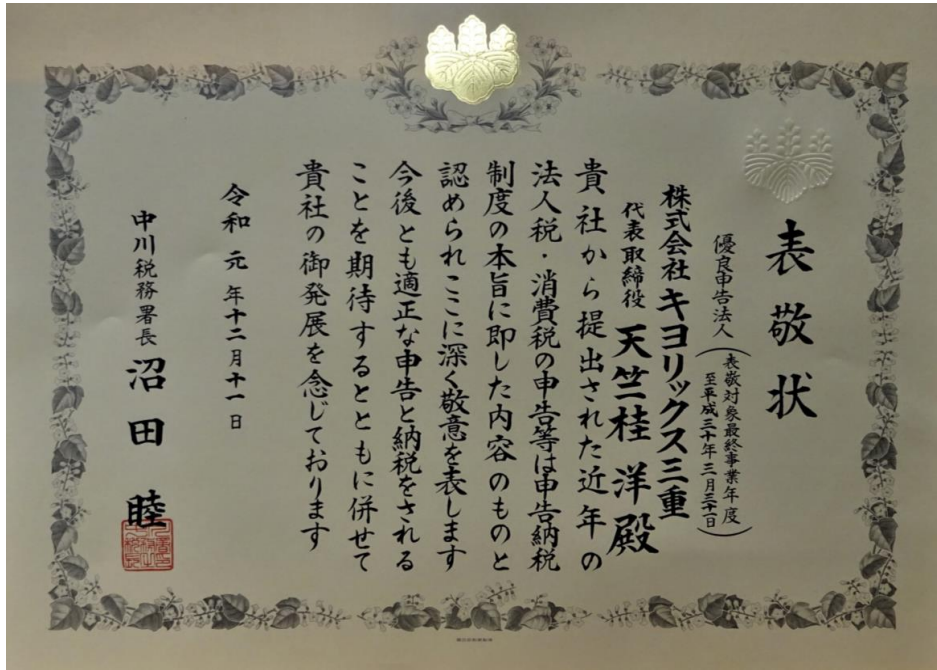 表敬状
優良申告法人
(表敬対象最終事業年度
至平成三十年三月三十一日)
株式会社キヨリックス三重
代表取締役 天竺桂 洋殿
貴社から提出された近年の
法人税・消費税の申告等は申告納税
制度の本旨に即した内容のものと
認められここに深く敬意を表します
今後とも適正な申告と納税をされる
ことを期待するとともに併せて
貴社の御発展を念じております
令和元年十二月十一日
中川税務署長 沼田 睦